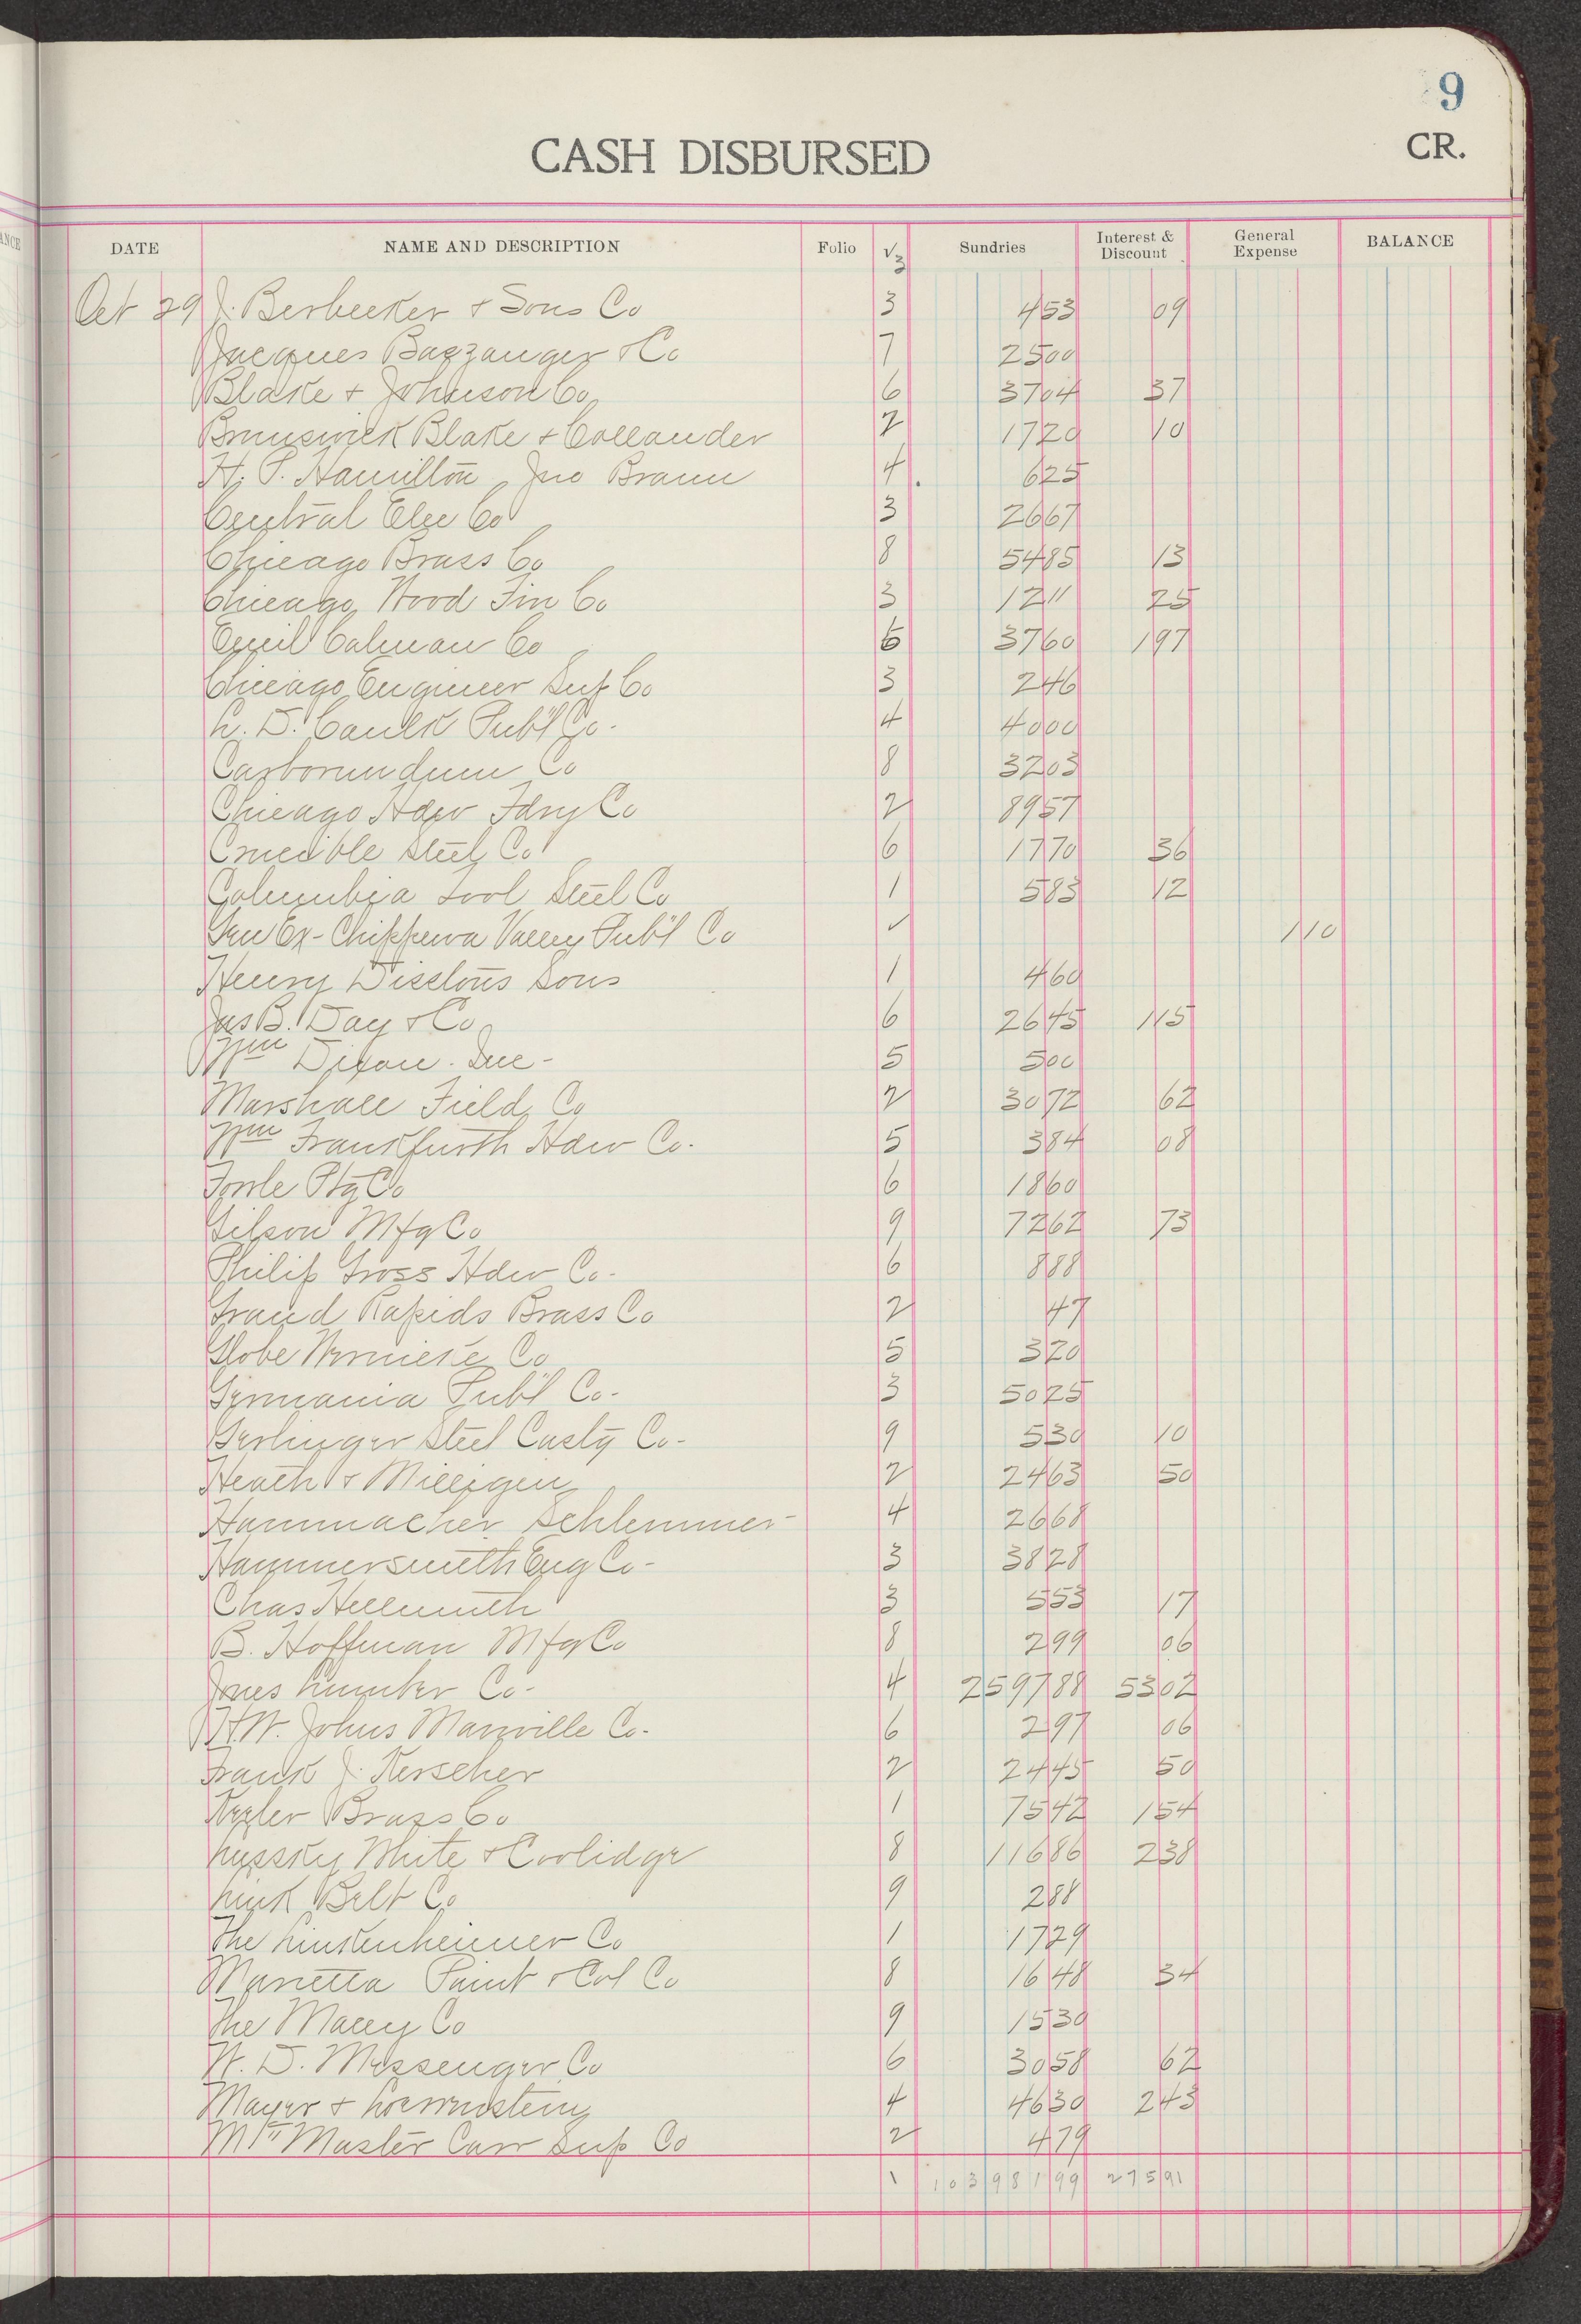 9
CASH DISBURSED
CR.
ANCE
DATE NAME AND DESCRIPTION Folio √ Sundries Interest & Discount General Expense BALANCE
3
Oct 29 J. Berbecker & Sons Co 3 453 09
Jacques 7 2500
Blake & Johnson Co 6 3704 37
Brunswick Blake & Collander 2 1720 10
H. P. Hamilton, Jno Braun 4 625
Central Elec Co 3 2667
Chicago Brass Co 8 5485 13
Chicago Wood Fin Co 3 1211 25
Emil Calman Co 5 3760 197
Chicago Engineer Sup Co 3 246
L. D. Caulk Pub'l Co - 4 4000
Carborundum Co 8 3203
Chicago Hdw Fdry Co 2 8957
Crucible Steel Co 6 1770 36
Columbia Tool Steel Co 1 583 12
Gen Ex - Chippewa Valley Pub'l Co ✓ 110
Henry Disston's Sons 1 460
Jas B. Day & Co 6 2645 115
Wm Dixon. Inc - 5 500
Marshall Field Co 2 3072 62
Wm Frankfurth Hdw Co. 5 384 08
Fowle Ptg Co 6 1860
Gilson Mfg Co 9 7262 73
Philip Gross Hdw Co - 6 888
Grand Rapids Brass Co 2 47
Globe Wernicke Co 5 320
Germania Pub'l Co - 3 5025
Gerlinger Steel Castg Co - 9 530 10
Heath & Milligen 2 2463 50
Hammacher Schlemmer - 4 2668
Hammersmith Eng Co - 3 3828
Chas Hellmuth 3 553 17
B. Hoffman Mfg Co 8 299 06
Jones Lumber Co - 4 259788 5302
H. W. Johns Manville Co - 6 297 06
Frank J. Kerscher 2 2445 50
Keeler Brass Co 1 7542 154
Lussky White & Coolidge 8 11686 238
Link Belt Co 9 288
The Lunkenheimer Co 1 1729
Marietta Paint & Col Co 8 1648 34
The Macey Co 9 1530
W. D. Messenger Co 6 3058 62
Mayer & Loewenstein 4 4630 243
Master Carr Sup Co 2 479
1 10398199 27591